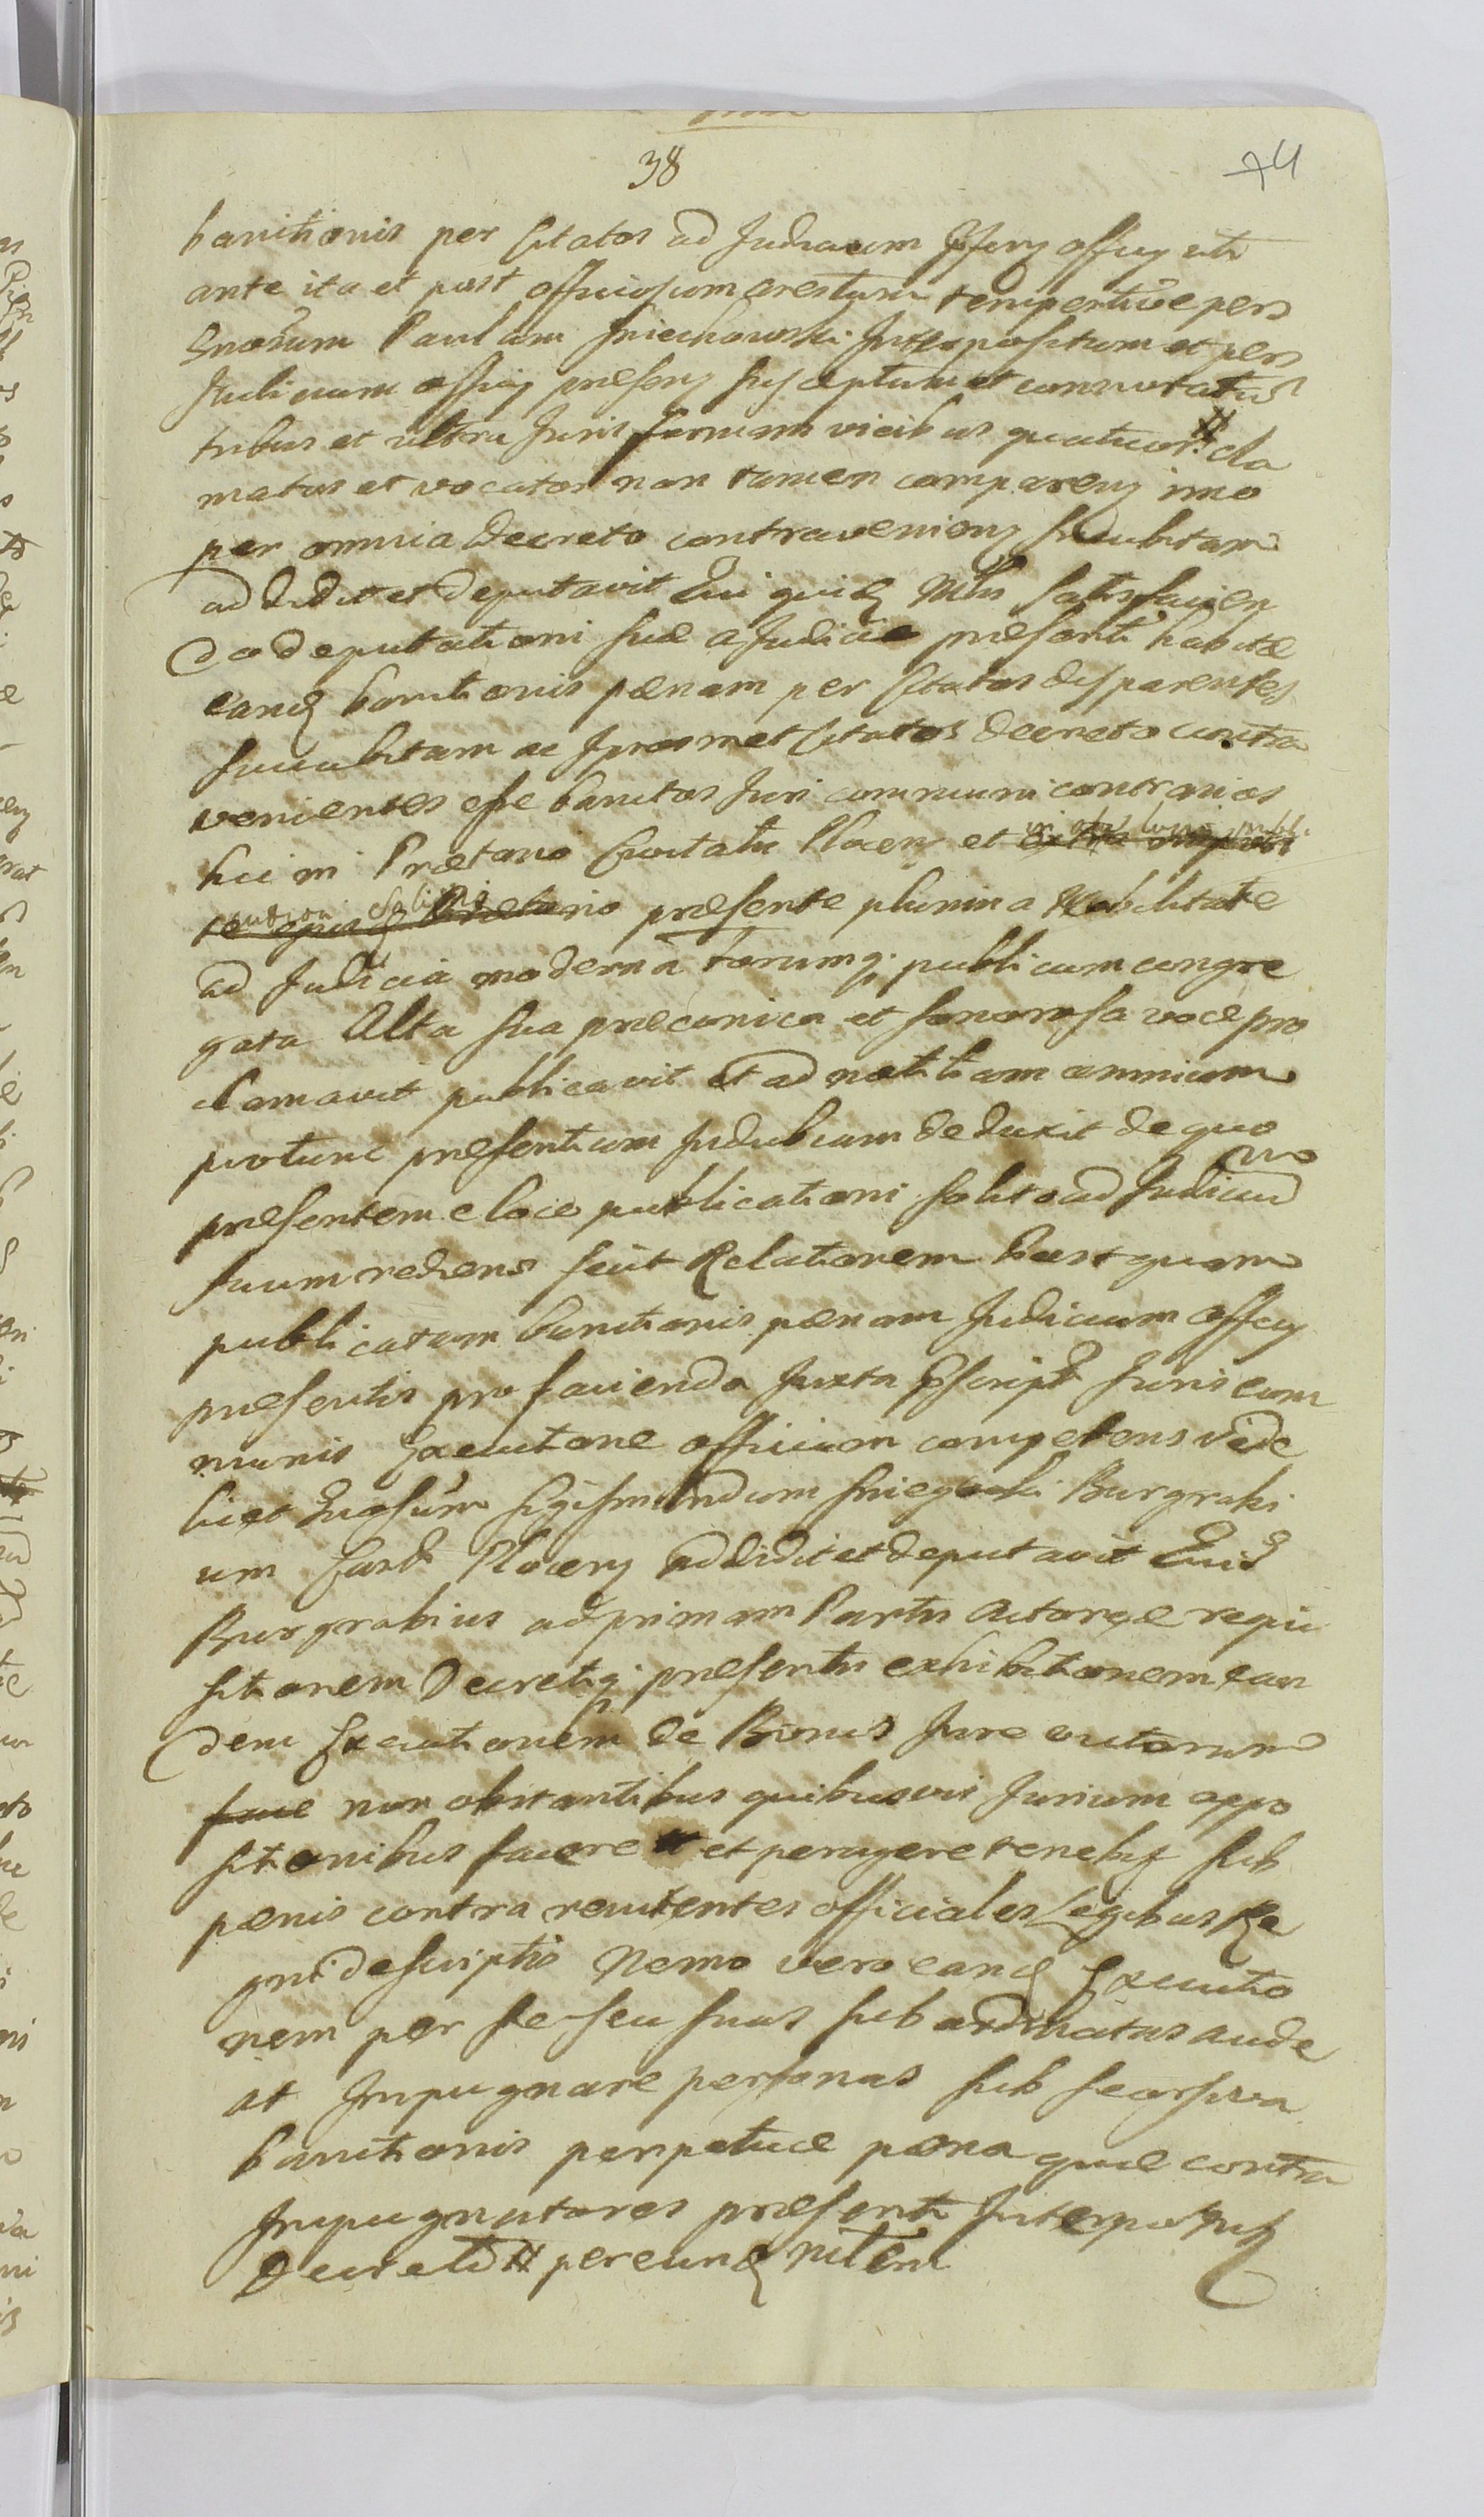 38
74
banitionis per Citatos ad Judicium Pñs officij uti
ante ita et post officiosum arestum tempestive per
Gnosum Paulum Interpositum et per
Judicium officij præsens susceptum et connotatus
tribus et ultra Juris formam vicibus quatuor cla
matos et vocatos non tamen comparens imo
per omnia Decreto contraveniens succubitam
addidit et deputavit Qui quidē Mtlis satisfacien
do deputationi suæ a Judicio præsenti habitæ
eandē banitionis pænam per Citatos disparentes
succubitam ac Ipsosmet Citatos Decreto contra
venientes esse banitos Juri communi contrarios
hic in Prætorio Civitatis Plocens et in
præsente plurima Nobilitate
ad Judicia moderna Forumq; publicum congre
gata Alta sua præconica et sonorosa voce pro
clamavit publicavit et ad notitiam omnium
protunc præsentium Indubiam deduxit de quo
præsentem e loco publicationi solito ad Judicium
suum rediens fecit Relationem Post quam
publicatam banitionis pænam Judicium officij
præsentis pro facienda Juxta pscript Juris com
munis Executione officium competens vide
licet Gnosum Sigismundum Burgrabi
um Castr Plocens addidit et deputavit Qui
Burgrabius ad primam Partis Actoreæ requi
sitionem Decretiq; præsentis exhibitionem ean
dem Executionem de Bonis Jure evictorum
suæ non obstantibus quibusvis Jurium oppo
sitionibus facere et peragere tenebit sub
pænis contra renitentes officiales Legibus Re
gni descriptis Nemo vero eandē Executio
nem per se seu suas subordinatas aude
at Impugnare personas sub seorsiva
banitionis perpetuæ pæna quæ contra
Impugnatores præsenti Interponitur
Decreto